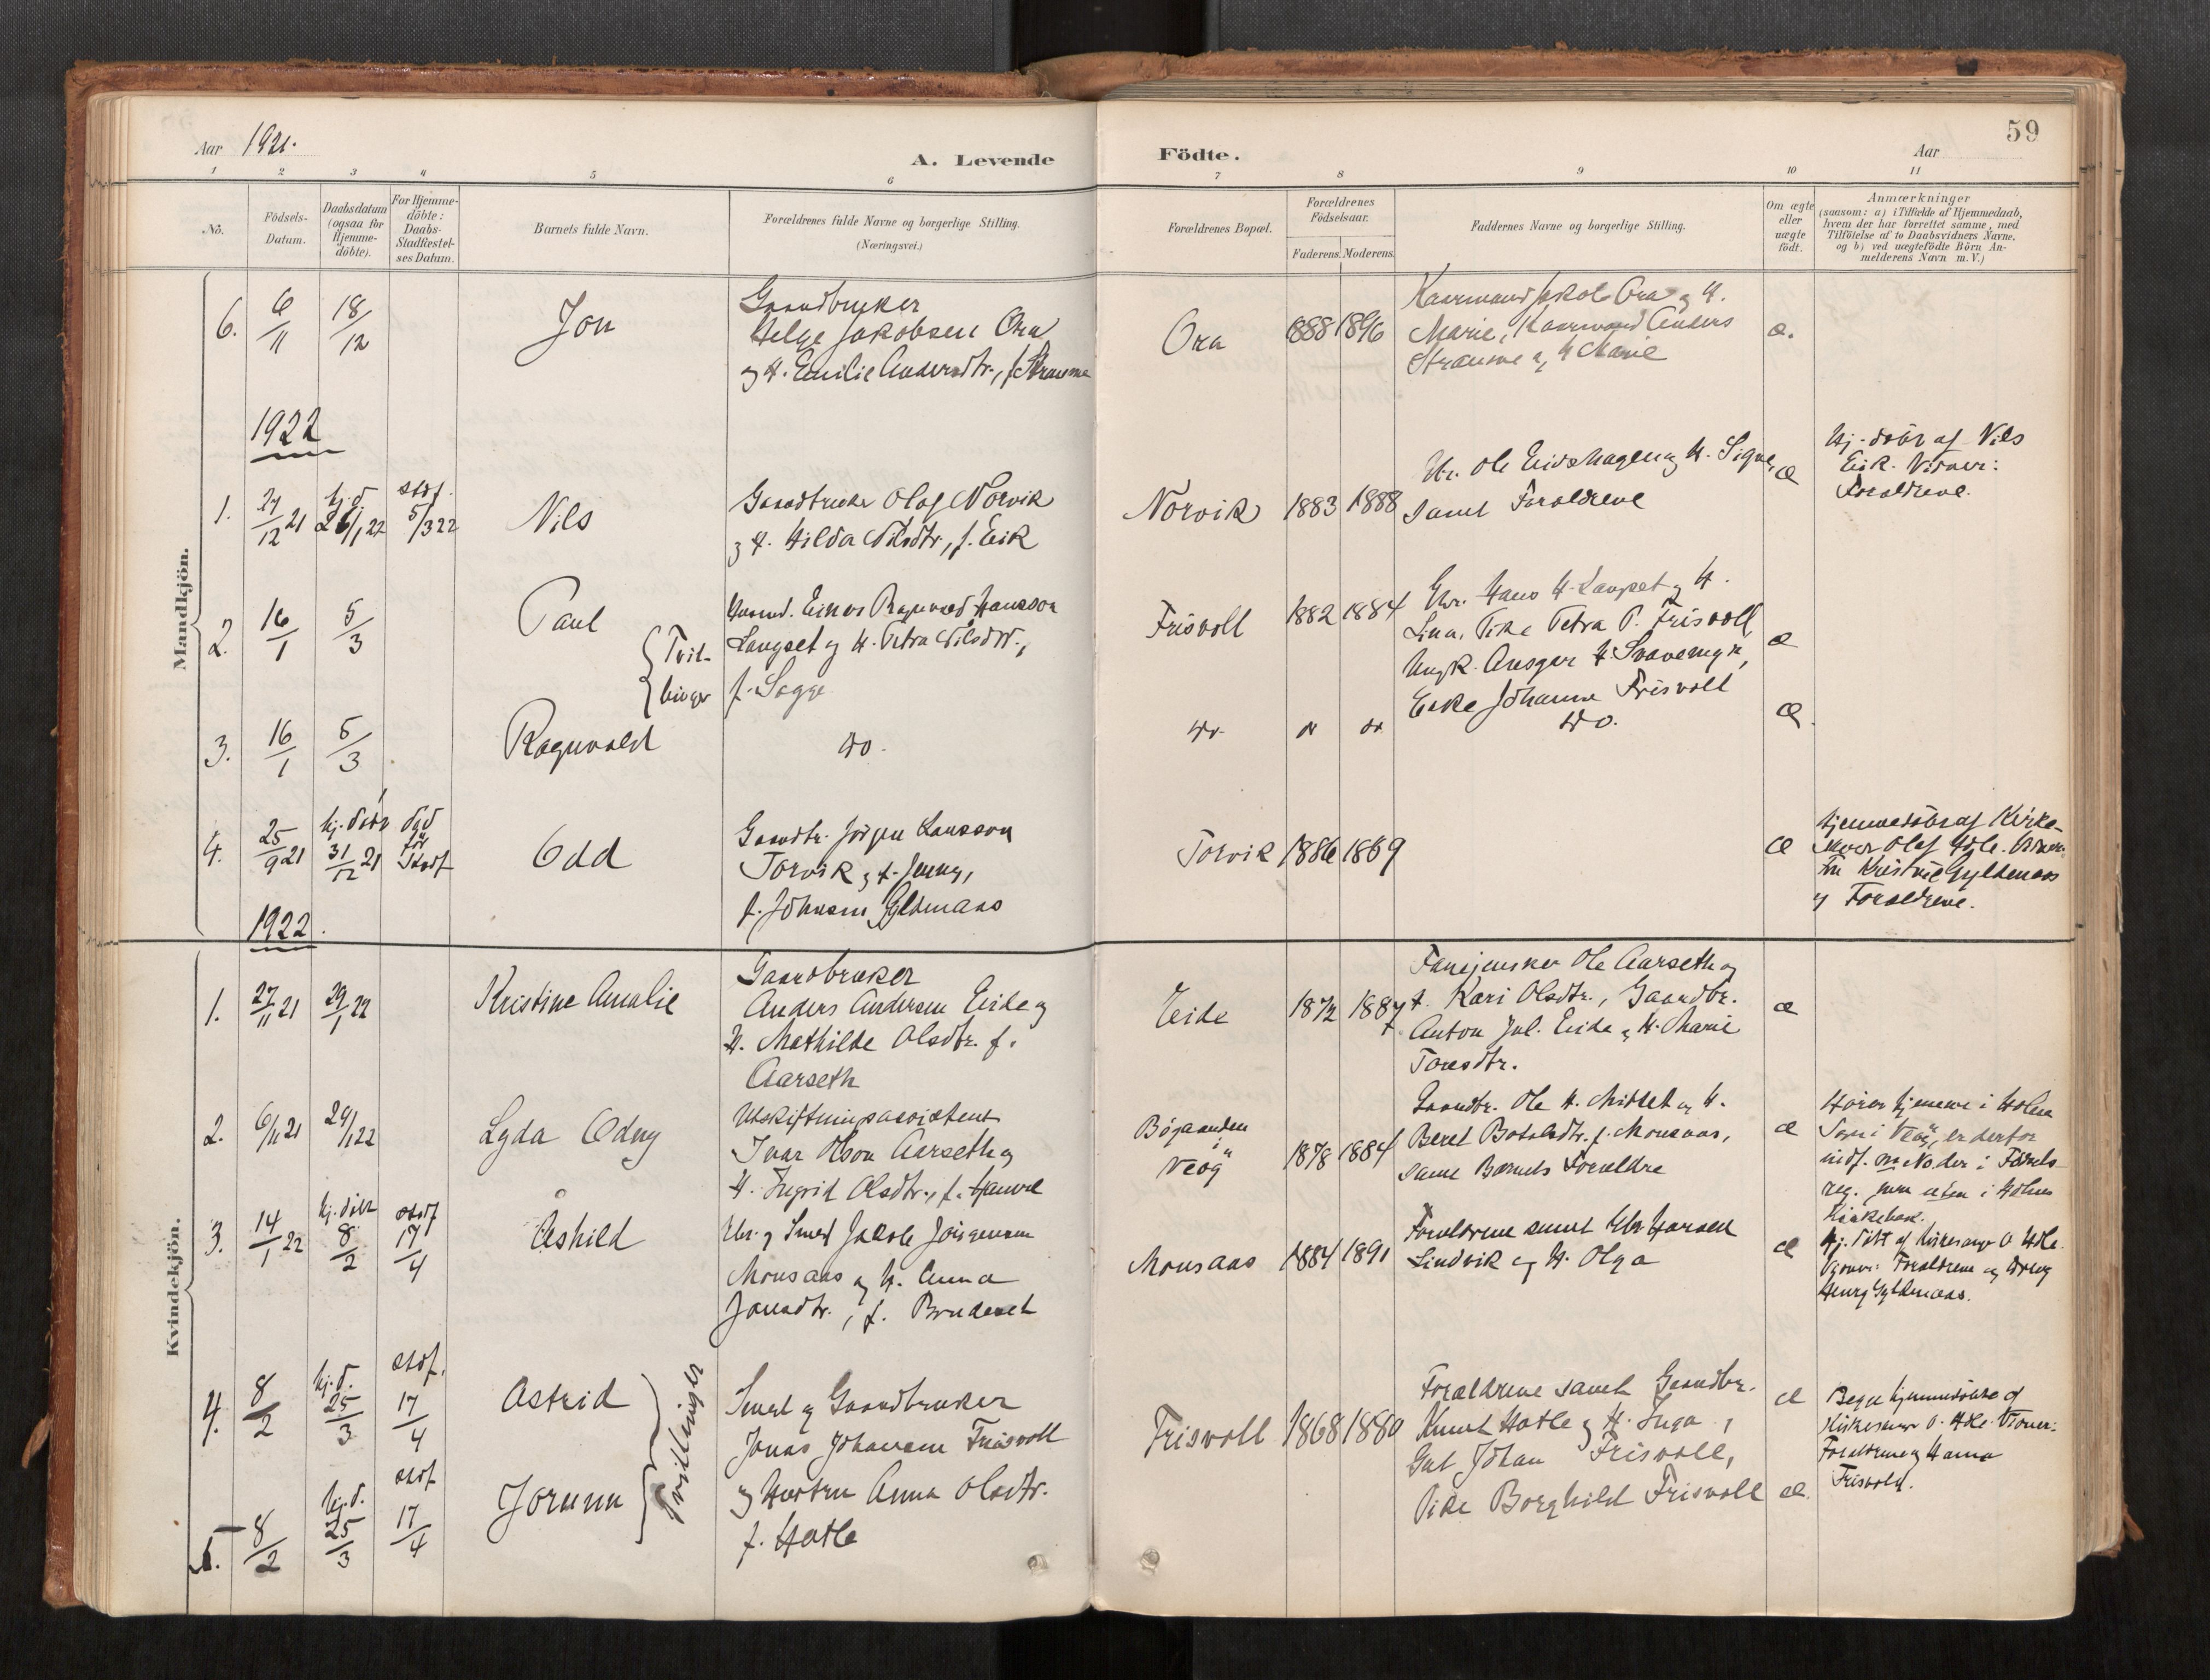 59
Aar 1921.
A. Levende
Födte.
Aar
1 2 3 4 5 6 7 8 9 10 11
No.
Födsels-
Datum.
Daabsdatum
(ogsaa for
Hjemme-
döbte).
For Hjemme-
döbte:
Daabs-
Stadfæstel-
ses Datum.
Barnets fulde Navn.
Forældrenes fulde Navne og borgerlige Stilling.
(Næringsvei.)
Forældrenes Bopæl.
Forældrenes
Födselsaar.
Faderens. Moderens.
Faddernes Navne og borgerlige Stilling.
Om ægte
eller
uægte
födt.
Anmærkninger
(saasom: a) i Tilfælde af Hjemmedaab,
hvem der har forrettet samme, med
Tilföielse af to Daabsvidners Navne,
og b) ved uægtefödte Börn An-
melderens Navn m. V.)
Mandkjön.
6. 6/11 18/12 Jon
Gaardbruker
Helge Jakobsen Ora
og H. Emilie Andersdtr., f. Straume
Ora 1888 1896
Kaarmand Jakob Ora og H.
Marie, Kaarmand Anders
Straume og H Marie
æ.
1922
1. 27/12 21 hj.d. 26/1 22 stdf. 5/3 22 Nils
Gaardbruker Olaf Norvik
og H. Hilda Nilsdtr., f. Eik
Norvik 1883 1888
Gbr. Ole Eidshagen og H. Signe,
samt Forældrene
æ
Hj.-döbt af Nils
Eik. Vidner:
Forældrene.
2. 16/1 5/3 Paul
Tvil-
linger
Einar Ragnvald Hansson
Langset og H. Petra Nilsdtr.,
f. Sogge
Frisvoll 1882 1884
Gbr. Hans H. Langset og H.
Lina, Pike Petra P. Frisvoll,
Ungk. Ansgar H.
Enke Johanne Frisvoll
æ
3. 16/1 5/3 Ragnvald
do.
do. do do
do.
æ.
4. 25/9 21 hj. döbt 31/12 21 död för Stadf Odd
Gaardbr. Jörgen Larsson
Torvik og H. Jenny,
f. Johnsen Gyldenaas
Torvik 1886 1889
æ
Hjemmedöbt af Kirke-
sanger Olaf Hole. Vidner:
Fru Kristine Gyldenaas
og Forældrene.
Kvindekjön.
1922.
1. 27/11 21 29/1 22 Kristine Amalie
Gaardbruker
Anders Andersen Eide og
H. Mathilde Olsdtr. f.
Aarseth
Eide 1872 1887
Ole Aarseth og
H. Kari Olsdtr., Gaardbr.
Anton Jul. Eide og H. Marie
Toresdtr.
æ
2. 6/11 21 29/1 22 Lyda Odny
Utskiftningsassistent
Ivar Olson Aarseth og
H. Ingrid Olsdtr., f.
i
Veöy 1878 1884
Gaardbr. Ole H. Mittet og H.
Beret Botolvdtr. f. Monsaas,
samt Barnets Forældre
æ
Hörer hjemme i Holm
Sogn i Veöy, er derfor
indf. m No der i Födsels
reg. men uten i Holms
Kirkebok.
3. 14/1 22 hj. döbt 8/2 stdf 17/4 Åshild
Gbr. og Smed Jakob Jörgensen
Monsaas og H. Anna
Jonsdtr., f. Bruaset
Monsaas 1884 1891
Forældrene samt Gbr
Lindvik og H. Olga
æ
Hj. döbt af Kirkesanger O. Hole.
Vidner: Forældrene og
Henry Gyldenaas.
4. 8/2 hj. d. 25/3 stdf. 17/4 Astrid
tvillinger
Smed og Gaardbruker
Jonas Johansen Frisvoll
og Hustru Anna Olsdtr.
f. Hatle
Frisvoll 1868 1880
Forældrene samt Gaardbr.
Knut Hatle og H. Inga,
Gut Johan Frisvoll,
Pike Borghild Frisvoll
æ
Begge hjemmedöbte af
Kirkesanger O. Hole. Vidner:
Forældrene og Hanna
Frisvoll.
5. 8/2 hj. d. 25/3 stdf 17/4 Jorunn
æ.